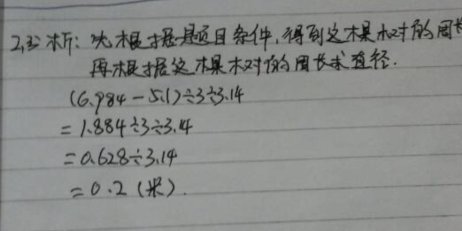 2,3 析：先根据题目条件，得到这棵树的周长
再根据这棵树的周长求直径．
(6.984－5.1)÷3÷3.14
=1.884÷3÷3.14
=0.628÷3.14
=0.2(米)．